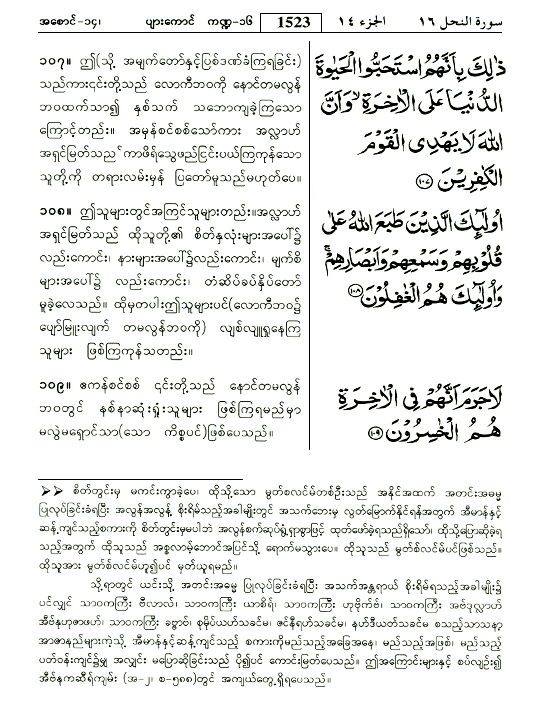 အစောင်-၁၄၊ ပျားကောင် ကဏ္ဍ-၁၆ 1523 الجزء ١٤ سورة النحل ١٦
၁၀၇။ ဤ(သို့ အမျက်တော်နှင့်ပြစ်ဒဏ်ခံကြရခြင်း)
သည်ကား၎င်းတို့သည် လောကီဘဝကို နောင်တမလွန်
ဘဝထက်သာ၍ နှစ်သက် သဘောကျခဲ့ကြသော
ကြောင့်တည်း။ အမှန်စင်စစ်သော်ကား အလ္လာဟ်
အရှင်မြတ်သည် ကာဖိရ်သွေဖည်ငြင်းပယ်ကြကုန်သော
သူတို့ကို တရားလမ်းမှန် ပြတော်မူသည်မဟုတ်ပေ။
ذٰلِكَ بِاَنَّهُمُ اسْتَحَبُّوا الْحَيٰوةَ
الدُّنْيَا عَلَى الْاٰخِرَةِ ۙ وَاَنَّ
اللّٰهَ لَا يَهْدِى الْقَوْمَ
الْكٰفِرِيْنَ ١٠٧
၁၀၈။ ဤသူများတွင်အကြင်သူများတည်း။အလ္လာဟ်
အရှင်မြတ်သည် ထိုသူတို့၏ စိတ်နှလုံးများအပေါ်၌
လည်းကောင်း၊ နားများအပေါ်၌လည်းကောင်း၊ မျက်စိ
များအပေါ်၌ လည်းကောင်း၊ တံဆိပ်ခပ်နှိပ်တော်
မူခဲ့လေသည်။ ထိုမှတပါးဤသူများပင်(လောကီဘဝ၌
ပျော်မြူးလျက် တမလွန်ဘဝကို) လျစ်လျူရှုနေကြ
သူများ ဖြစ်ကြကုန်သတည်း။
اُولٰٓئِكَ الَّذِيْنَ طَبَعَ اللّٰهُ عَلٰى
قُلُوْبِهِمْ وَسَمْعِهِمْ وَاَبْصَارِهِمْ ۚ
وَاُولٰٓئِكَ هُمُ الْغٰفِلُوْنَ ١٠٨
၁၀၉။ ဧကန်စင်စစ် ၎င်းတို့သည် နောင်တမလွန်
ဘဝတွင် နစ်နာဆုံးရှုံးသူများ ဖြစ်ကြရမည်မှာ
မလွဲမရှောင်သာ(သော ကိစ္စပင်)ဖြစ်ပေသည်။
لَا جَرَمَ اَنَّهُمْ فِى الْاٰخِرَةِ
هُمُ الْخٰسِرُوْنَ ١٠٩
➢➢ စိတ်တွင်းမှ မကင်းကွာခဲ့ပေ၊ ထိုသို့သော မွတ်စလင်မ်တစ်ဦးသည် အနိုင်အထက် အတင်းအဓမ္မ
ပြုလုပ်ခြင်းခံရပြီး အလွန်အလွန့် စိုးရိမ်ရသည့်အခါမျိုးတွင် အသက်ဘေးမှ လွတ်မြောက်နိုင်ရန်အတွက် အီမာန်နှင့်
ဆန့်ကျင်သည့်စကားကို စိတ်တွင်းမှမပါဘဲ အလွန်စက်ဆုပ်ရွံရှာစွာဖြင့် ထုတ်ဖော်ခဲ့ရသည်ရှိသော်၊ ထိုသို့ပြောဆိုခဲ့ရ
သည့်အတွက် ထိုသူသည် အစ္စလာမ့်ဘောင်အပြင်သို့ ရောက်မသွားပေ။ ထိုသူသည် မွတ်စလင်မ်ပင်ဖြစ်သည်။
ထိုသူအား မွတ်စလင်မ်ဟူ၍ပင် မှတ်ယူရမည်။
သို့ရာတွင် ယင်းသို့ အတင်းအဓမ္မ ပြုလုပ်ခြင်းခံရပြီး အသက်အန္တရာယ် စိုးရိမ်ရသည့်အခါမျိုး၌
ပင်လျှင် သာဝကကြီး ဗီလာလ်၊ သာဝကကြီး ယာစိရ်၊ သာဝကကြီး ဟုဗိုက်ဗ်၊ သာဝကကြီး အဗ်ဒုလ္လာဟ်
အီဗ်နုဟုဇာဖဟ်၊ သာဝကကြီး ခဗ္ဗာဗ်၊ စုမိုင်ယဟ်သခင်မ၊ ဇင်နီရဟ်သခင်မ၊ နဟ်ဒီယဟ်သခင်မ စသည့်သာသနာ့
အာဇာနည်များကဲ့သို့ အီမာန်နှင့်ဆန့်ကျင်သည့် စကားကိုမည်သည့်အခြေအနေ၊ မည်သည့်အဖြစ်၊ မည်သည့်
ပတ်ဝန်းကျင်၌မျှ အလျှင်း မပြောဆိုခြင်းသည် ပို၍ပင် ကောင်းမြတ်ပေသည်။ ဤအကြောင်းများနှင့် စပ်လျဉ်း၍
အီဗ်နုကဆီရ်ကျမ်း (အ-၂၊ စ-၅၈၈)တွင် အကျယ်တွေ့ရှိရပေသည်။